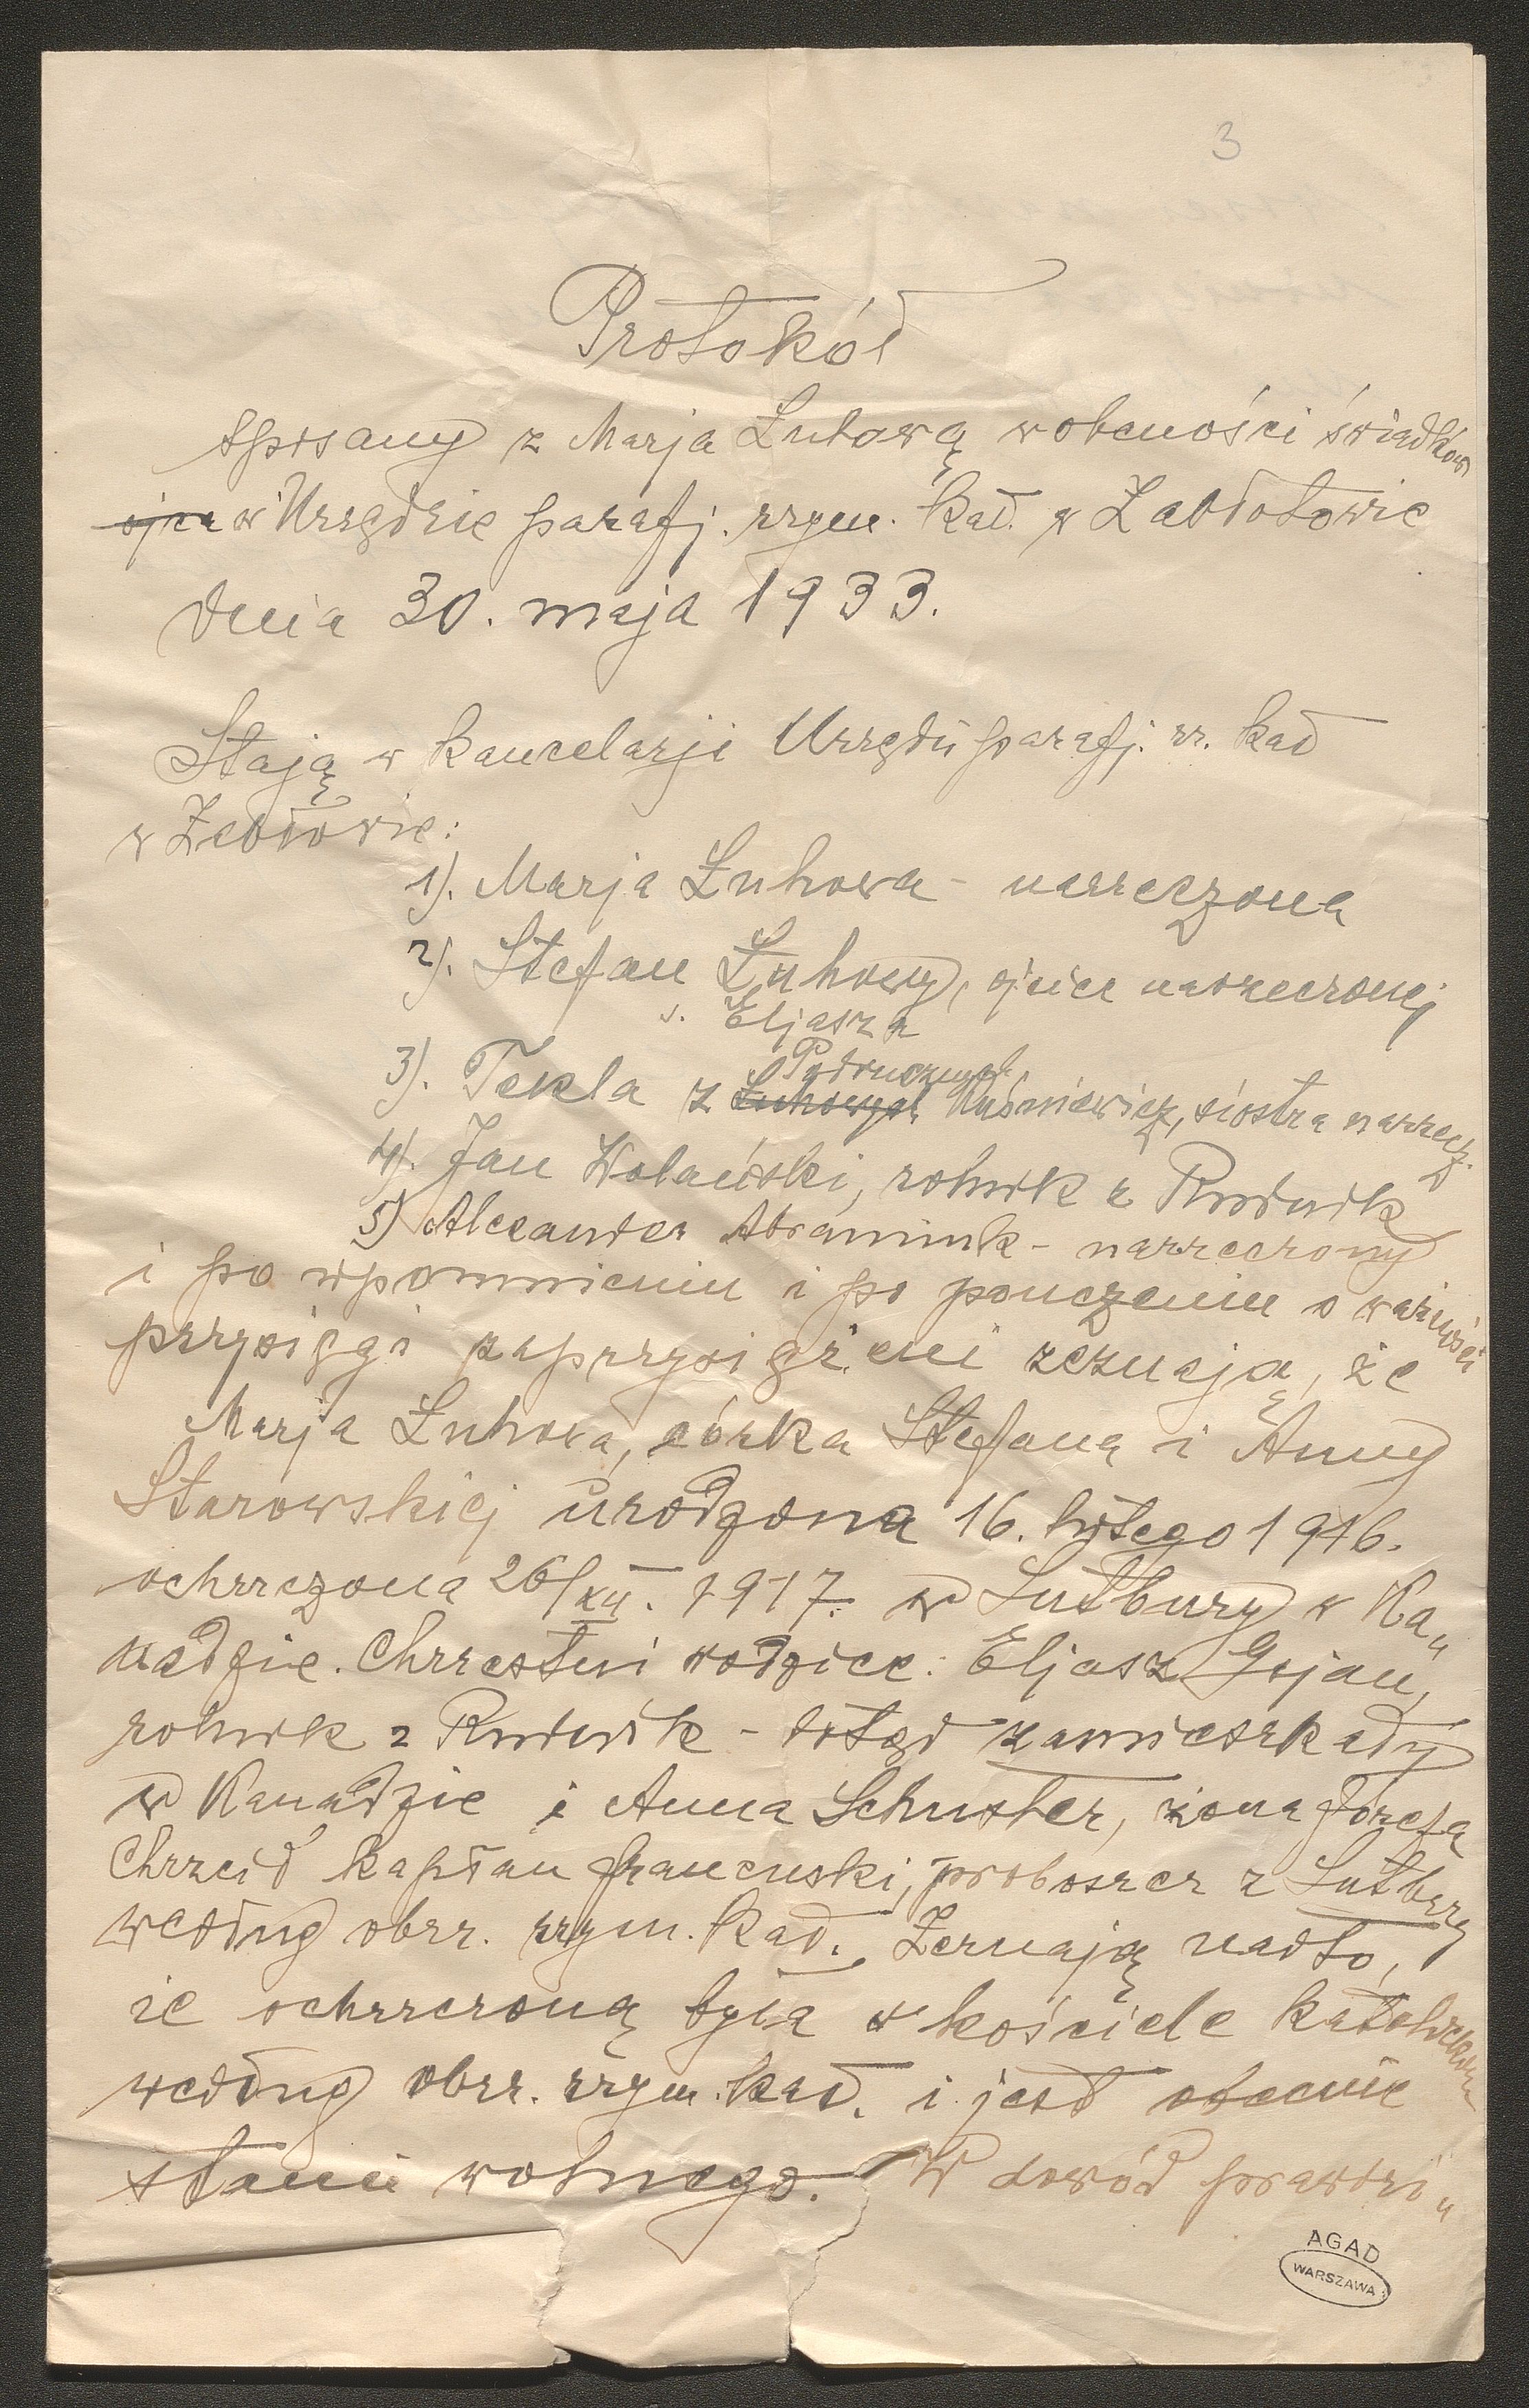 3
Protokół
spisany z Marja Łuhową w obecności świadków
ojca w Urzędzie parafj. rzym. kat. w Zabłotowie
dnia 30. maja 1933.
Stają w kancelarji Urzędu parafj. rz. kat
w Zabłowie:
1). Marja Łuhowa - narzeczona
2). Stefan Łuhowy, ojciec narzeczonej
s. Eljasza
3). Tekla z Łuhowych Kuśniewicz, siostra narzecz.
4). Jan Wolański, rolnik z Rudnik
5) Alexander Abramiuk - narzeczony
i po wpomnieniu i po pouczeniu o ważności
przysięgi zaprzysiężeni zeznają, że
Marja Łuhowa, córka Stefana i Anny
Starowskiej urodzona 16. lutego 1916.
ochrzczona 26/XII. 1917. w Sutbury w Ka„
nadzie. Chrzestni rodzice: Eljasz Gojan,
rolnik z Rudnik - dotąd zamieszkały
w Kanadzie i Anna Schuster, żona Józefa
Chrzcił kapłan francuski, proboszcz z Sutbury
według obrz. rzym. kat. Zeznają nadto,
że ochrzczoną była w kościele katolickim
według obrz. rzym. kat. i jest obecnie
stanu wolnego. W dowód prawdzi„
AGAD
WARSZAWA